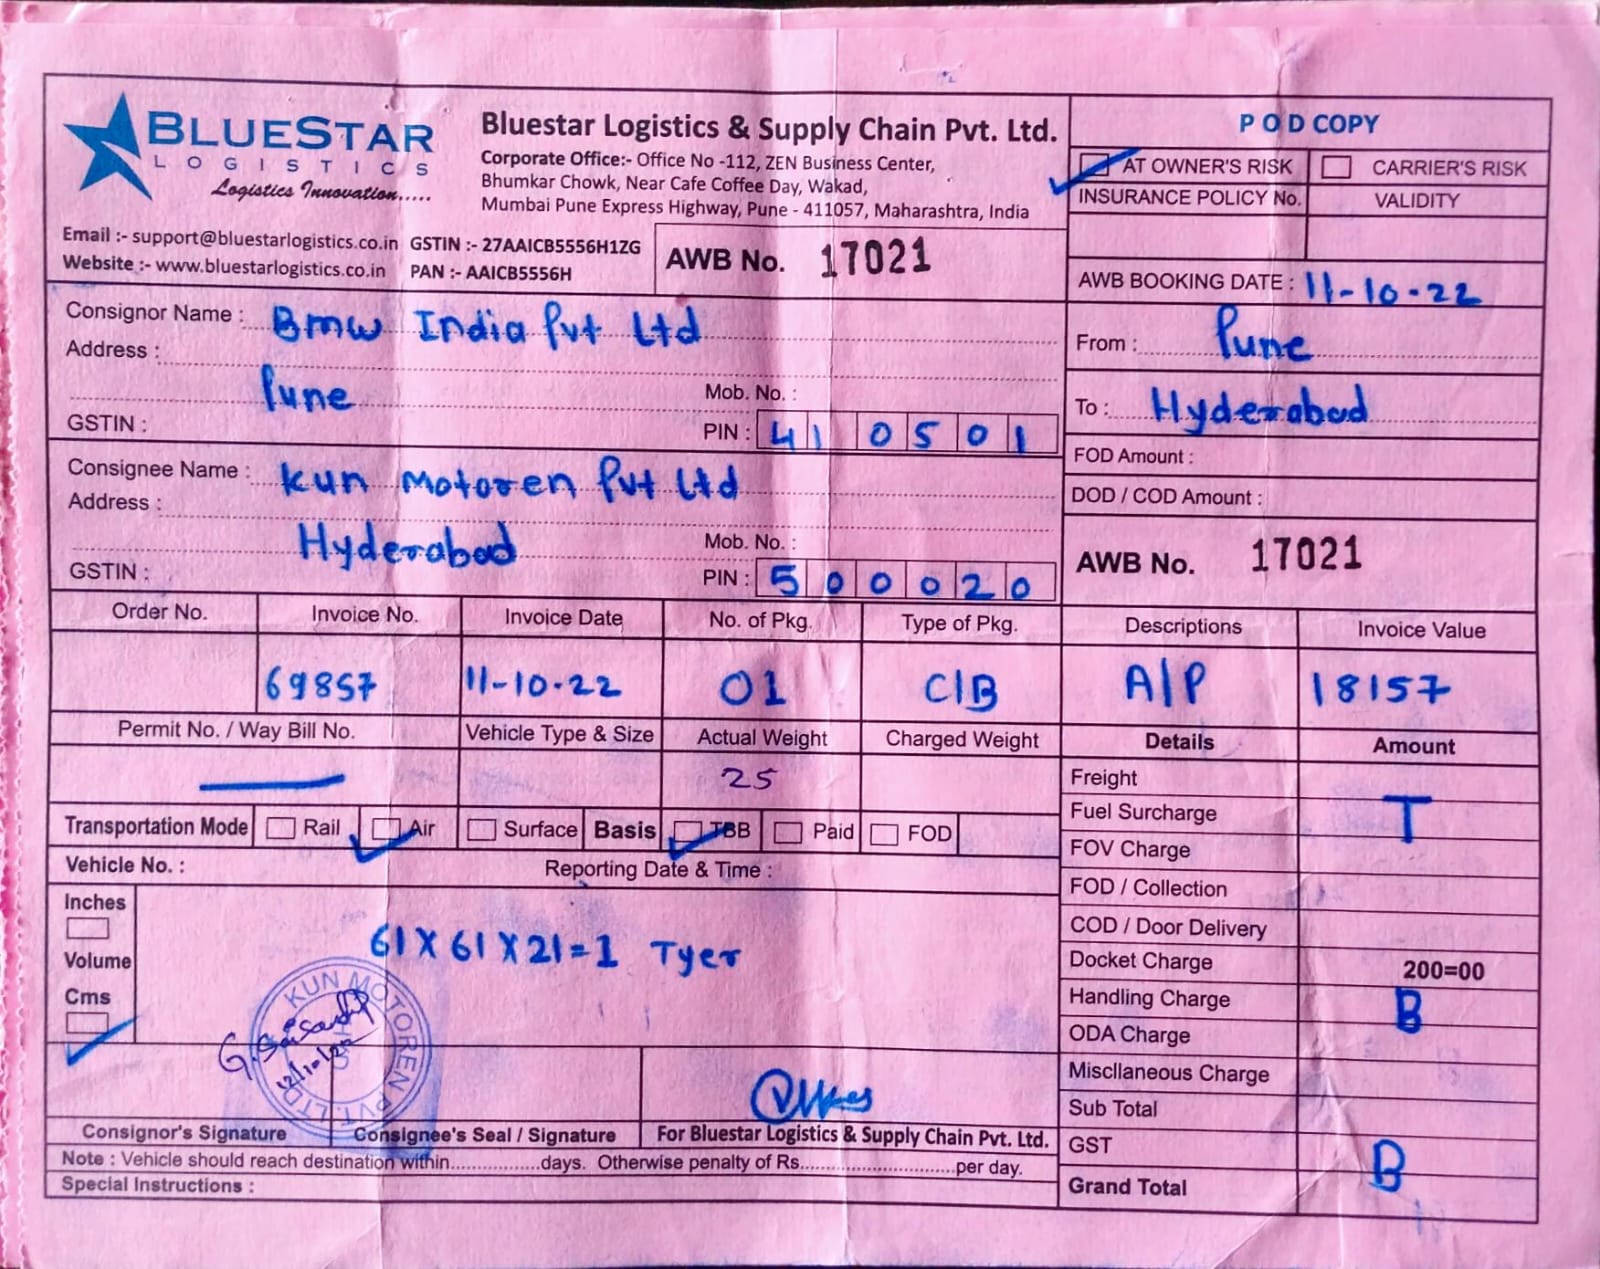 BLUESTAR
LOGISTICS
Logistics Innovation.....
Email :- support@bluestarlogistics.co.in
Website :- www.bluestarlogistics.co.in
Bluestar Logistics & Supply Chain Pvt. Ltd.
Corporate Office:- Office No -112, ZEN Business Center,
Bhumkar Chowk, Near Cafe Coffee Day, Wakad,
Mumbai Pune Express Highway, Pune - 411057, Maharashtra, India
GSTIN :- 27AAICB5556H1ZG
PAN :- AAICB5556H
AWB No. 17021
P O D COPY
AT OWNER'S RISK CARRIER'S RISK
INSURANCE POLICY No. VALIDITY
AWB BOOKING DATE : 11-10-22
From : Pune
To : Hyderabad
FOD Amount :
DOD / COD Amount :
AWB No. 17021
Consignor Name : Bmw India Pvt Ltd
Address :
Pune Mob. No. :
GSTIN : PIN : 410501
Consignee Name : Kun Motoren Pvt Ltd
Address :
Hyderabad Mob. No. :
GSTIN : PIN : 500020
Order No. Invoice No. Invoice Date No. of Pkg. Type of Pkg. Descriptions Invoice Value
69857 11-10-22 01 C/B A/P 18157
Permit No. / Way Bill No. Vehicle Type & Size Actual Weight Charged Weight
25
Transportation Mode Rail Air Surface Basis TBB Paid FOD
Vehicle No. : Reporting Date & Time :
Inches
Volume
Cms
61 X 61 X 21=1 Tyer
KUN MOTOREN PVT. LTD
G. Saisandip
12/10/22
Consignor's Signature Consignee's Seal / Signature For Bluestar Logistics & Supply Chain Pvt. Ltd.
Note : Vehicle should reach destination within..................days. Otherwise penalty of Rs...............................per day.
Special Instructions :
Details Amount
Freight
Fuel Surcharge T
FOV Charge
FOD / Collection
COD / Door Delivery
Docket Charge 200=00
Handling Charge B
ODA Charge
Miscllaneous Charge
Sub Total
GST B
Grand Total